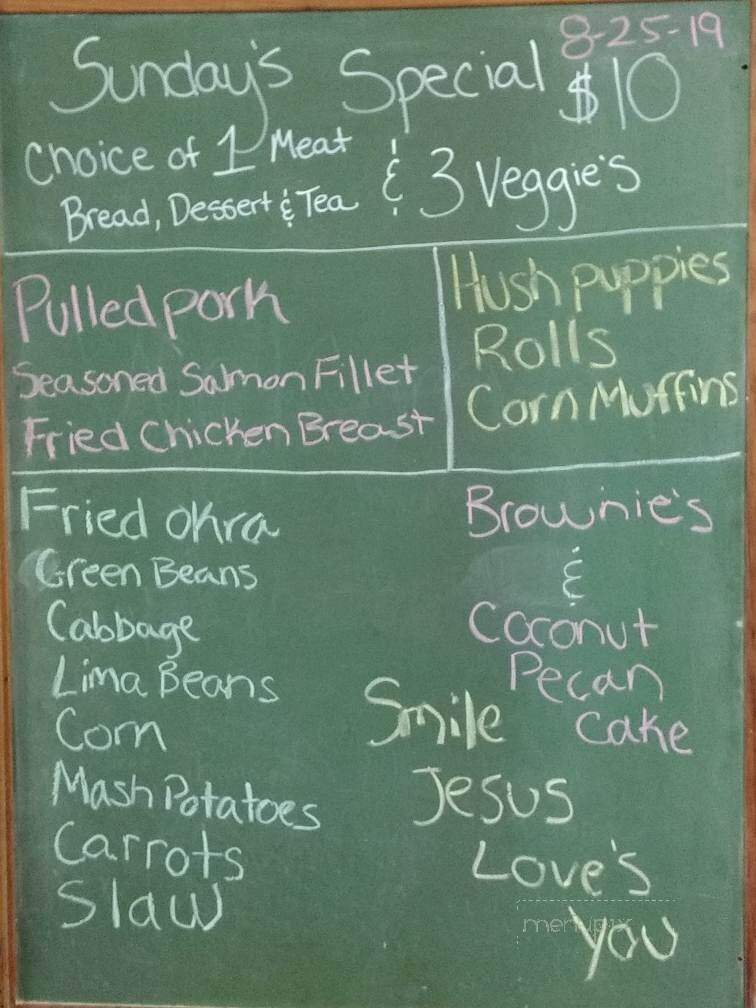 8-25-19
Sunday's Special $10
Choice of 1 Meat & 3 Veggie's
Bread, Dessert & Tea
Pulled pork
Seasoned Salmon Fillet
Fried Chicken Breast
Hush puppies
Rolls
Corn Muffins
Fried okra
Green Beans
Cabbage
Lima Beans
Corn
Mash Potatoes
Carrots
Slaw
Brownie's
&
Coconut
Pecan
Cake
Smile
Jesus
Love's
You
menupix